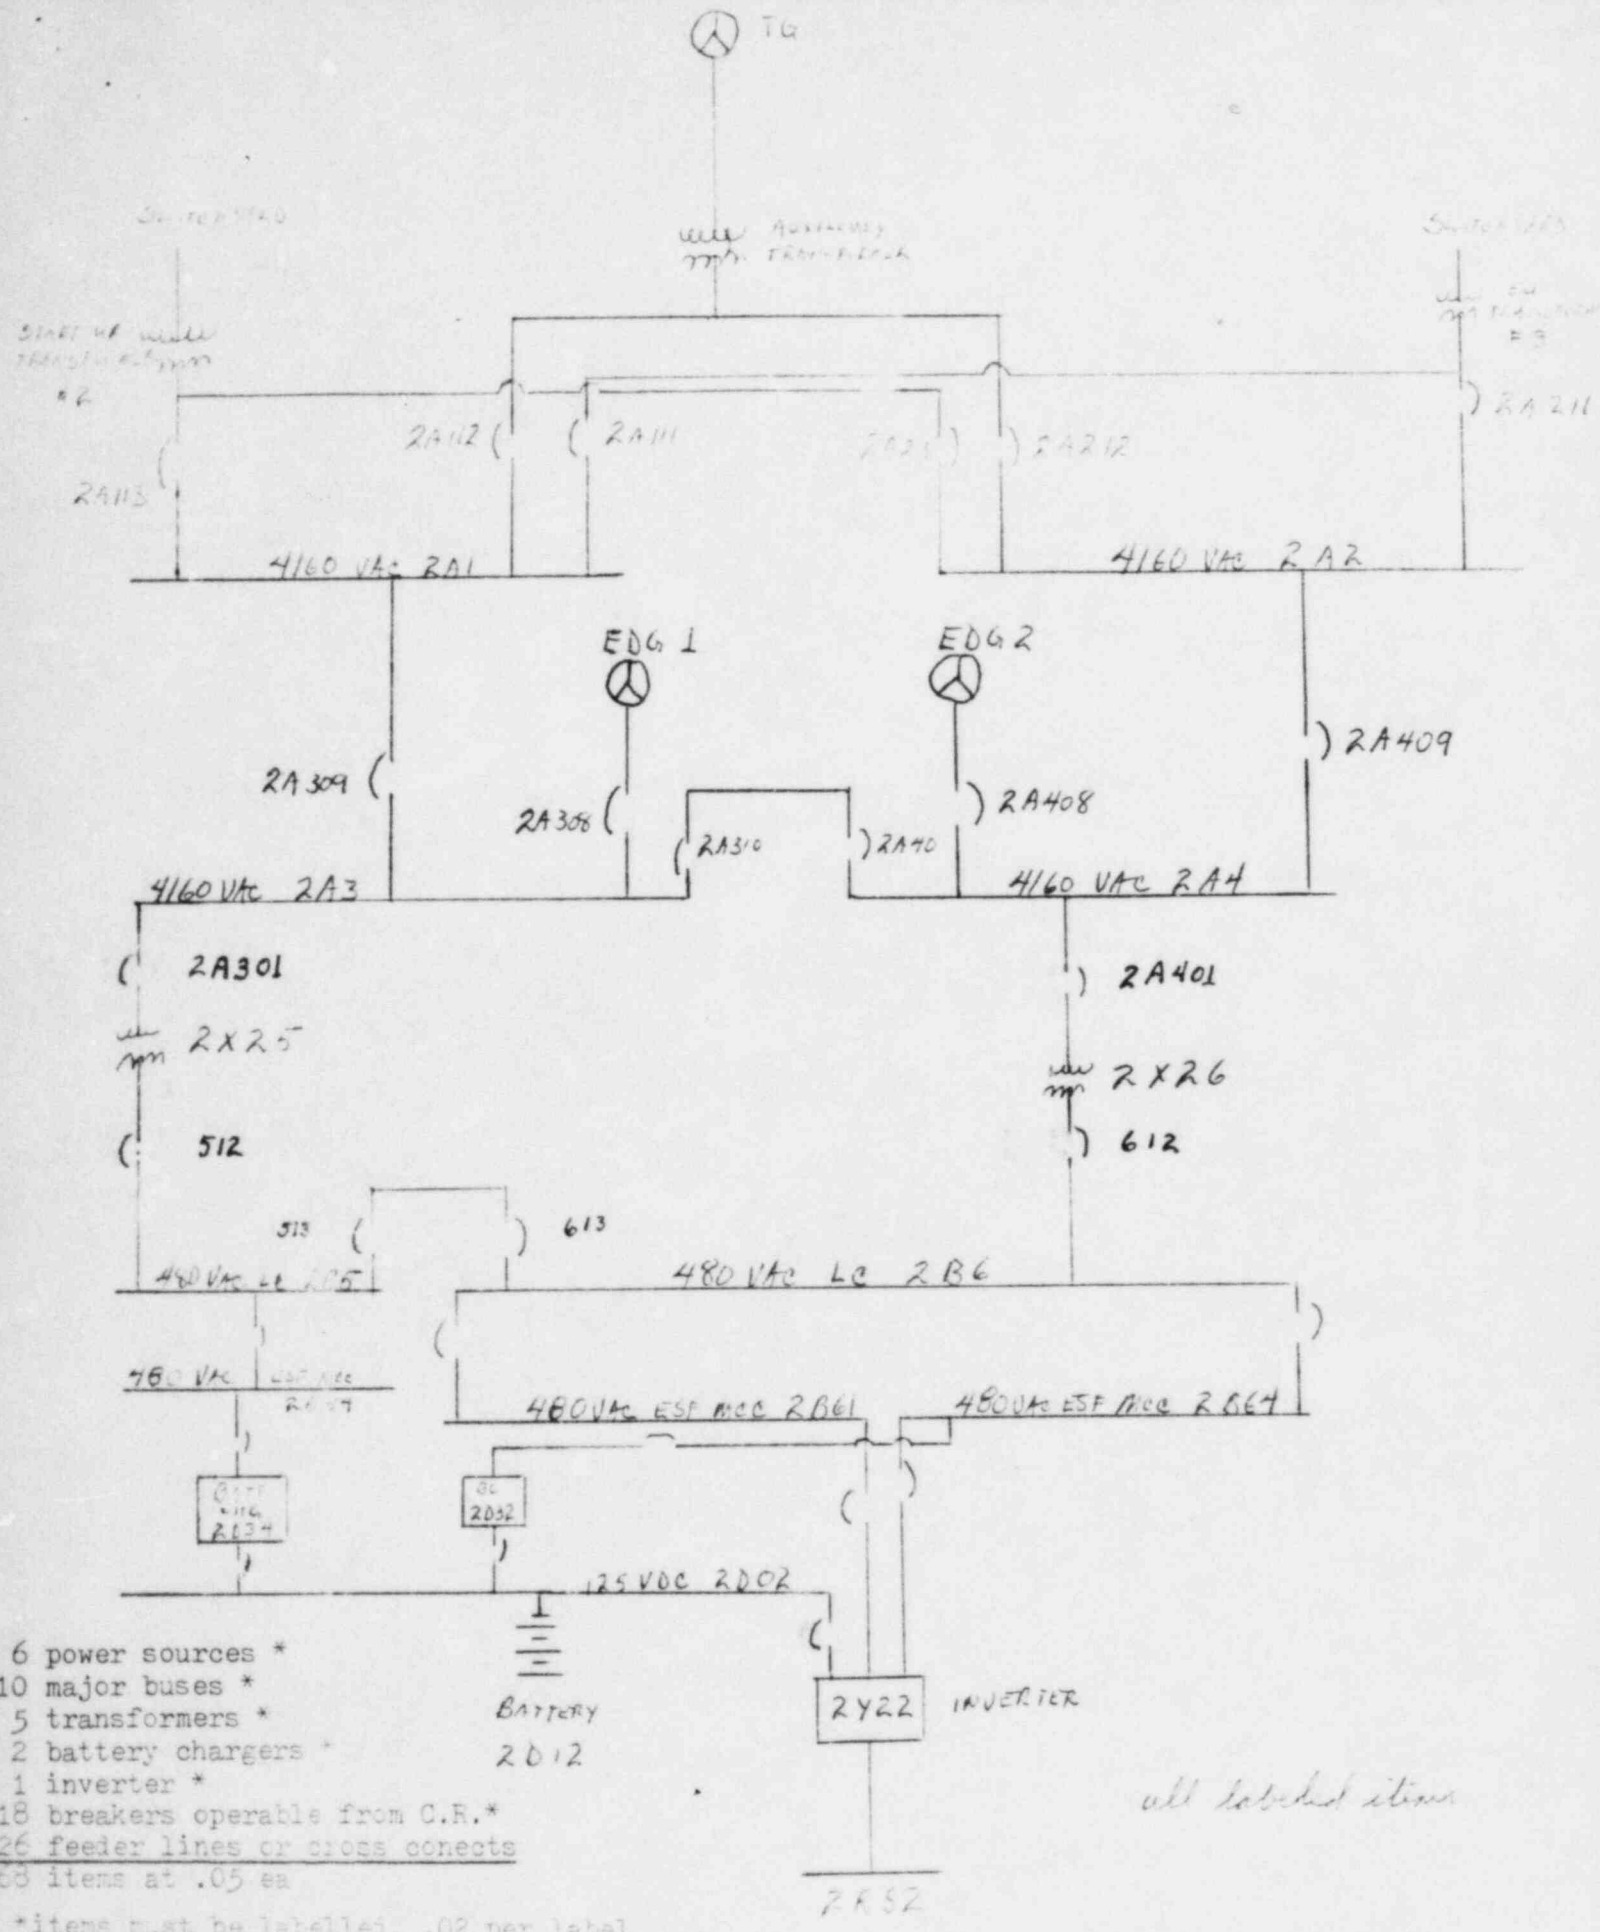 TG
SWITCHYARD
AUXILIARY
TRANSFORMER
SWITCHYARD
START UP
#2
#3
2A113
2A112
2A111
2A212
2A211
4160 VAC 2A1
4160 VAC 2A2
EDG 1
EDG 2
2A309
2A308
2A310
2A40
2A408
2A409
4160 VAC 2A3
4160 VAC 2A4
2A301
2A401
2X25
2X26
512
612
513
613
480 VAC LC 2B5
480 VAC LC 2B6
480 VAC
480 VAC ESF MCC 2B61
480 VAC ESF MCC 2B64
BATT
2D34
BC
2D32
125 VDC 2D02
BATTERY
2D12
2Y22
INVERTER
2RS2
6 power sources *
10 major buses *
5 transformers *
2 battery chargers *
1 inverter *
18 breakers operable from C.R.*
26 feeder lines or cross conects
68 items at .05 ea
*items must be labelled .02 per label
all labeled items